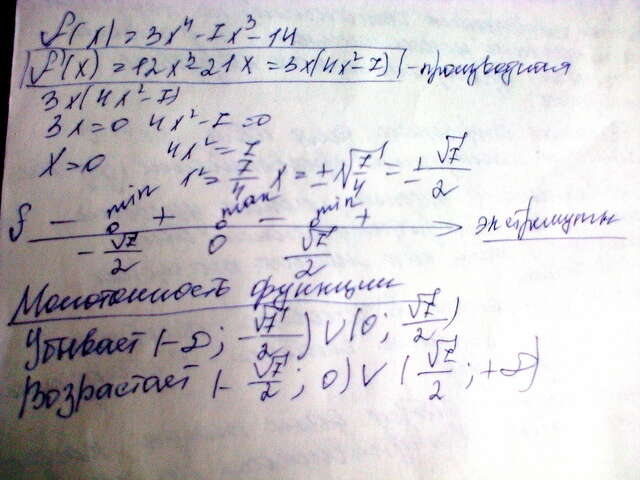 f(x) = 3x⁴ - 7x³ - 14
f'(x) = 12x² 21x = 3x(4x²-7) - производная
3x(4x²-7)
3x=0 4x²-7=0
x=0 4x²=7
x²=7/4 x=±√7/4 = ±√7/2
f - min + max - min + экстремумы
-√7/2 0 √7/2
Монотонность функции
Убывает (-∞; -√7/2) ∪ (0; √7/2)
Возрастает (-√7/2; 0) ∪ (√7/2; +∞)